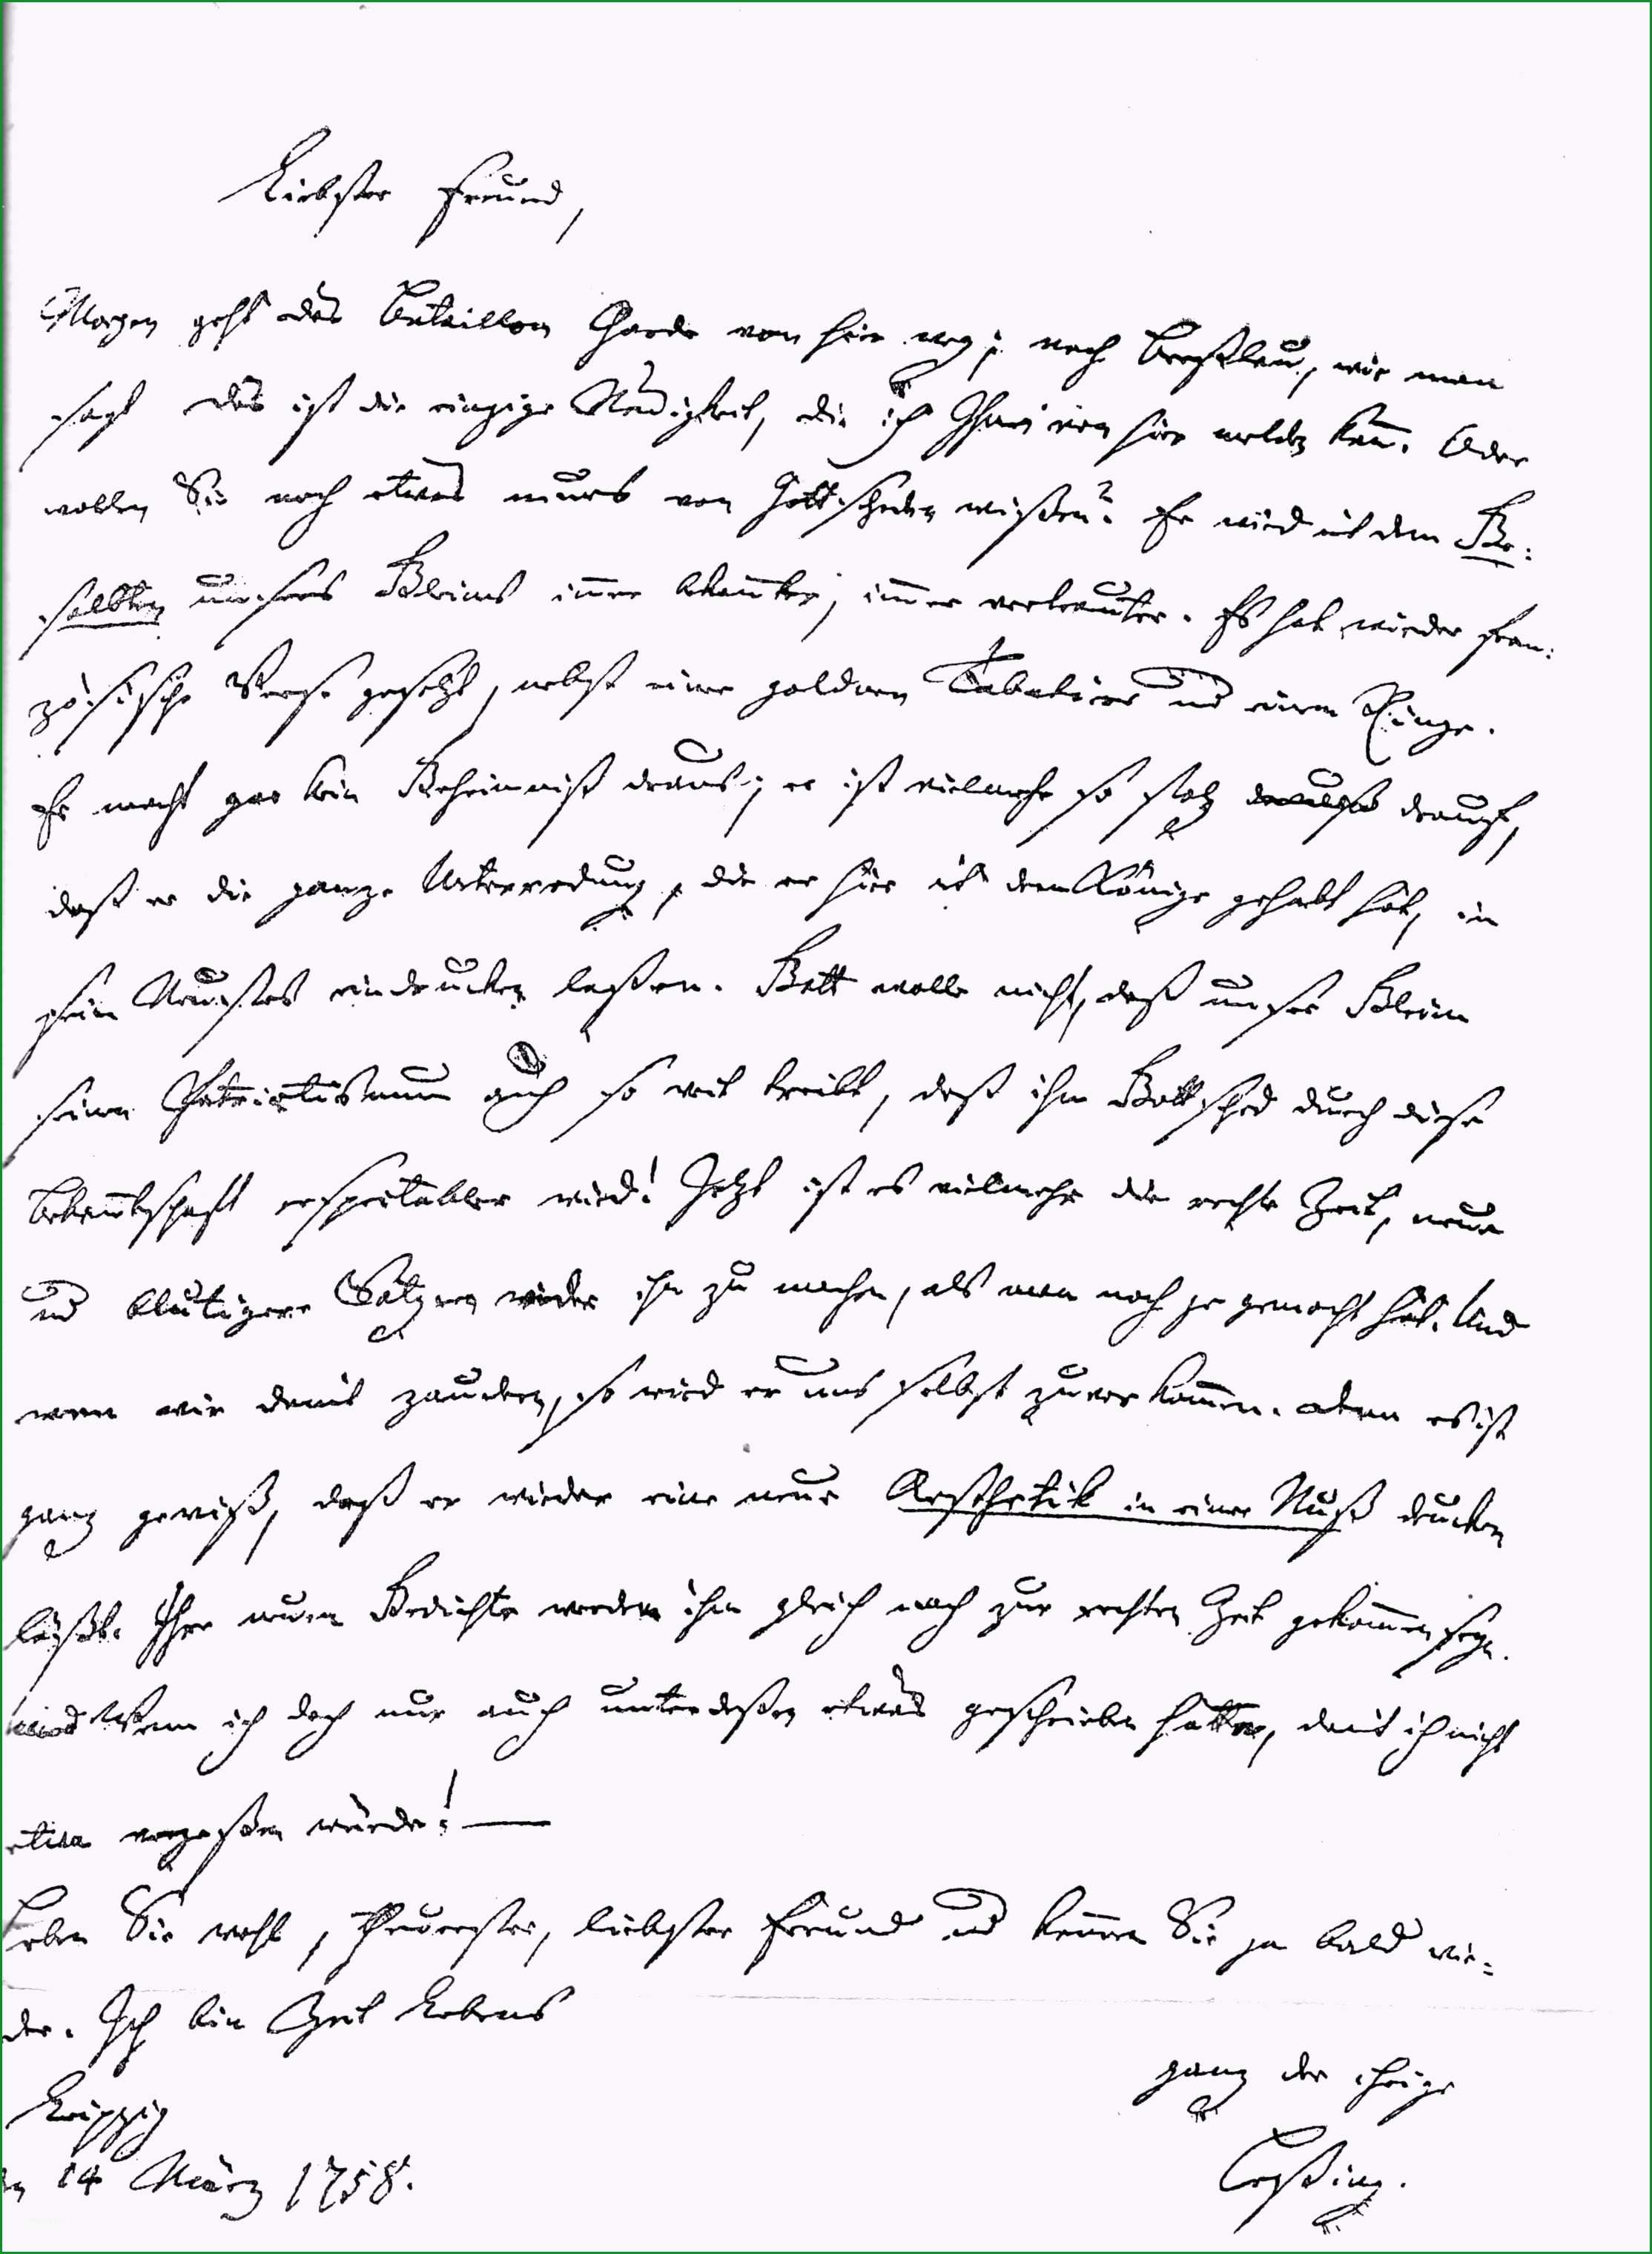 Liebster Freund,
Morgen geht das Bataillon Garde von hier weg; nach Breßlau, wie man
sagt Das ist die einzige Neuigkeit, die ich Ihnen von hier melden kan̅. Oder
wollen Sie noch etwas neues von Gottscheden wißen? Er wird mit dem Be:
selbten unsers Gleims im̅er bekan̅ter, im̅er vertrauter. Es hat wieder fran:
zösische Verse gesetzt, nebst einer goldnen Tabatiere und einem Ringe.
Er macht gar kein Geheimniß draus; er ist vielmehr so stolz drauf,
daß er die ganze Unterredung, die er hier mit dem Könige gehabt hat, in
sein Neustes eindrucken laßen. Gott wolle nicht, daß unser Gleim
seinen Patriotismum auch so weit treibt, daß ihm Gottsched durch diese
Bekan̅tschaft respectabler wird! Jetzt ist es vielmehr die rechte Zeit, neue
und blutigere Satyren wider ihn zu machen, als man noch je gemacht hat. Und
wenn wir damit zaudern, so wird er uns selbst zuvor kom̅en. denn es ist
ganz gewiß, daß er wieder eine neue Aesthetik in einer Nuß drucken
läßt. Ihre neuen Gedichte werden ihm gleich noch zur rechten Zeit gekom̅en seyn.
Wenn ich doch nur auch unterdeßen etwas geschrieben hätte, damit ich nicht
etwa vergeßen würde! —
Leben Sie wohl, theuerster, liebster Freund und kom̅en Sie ja bald wie=
der. Ich bin Zeit Lebens
ganz der ihrige
Leipzig
14 März 1758.
Leßing.